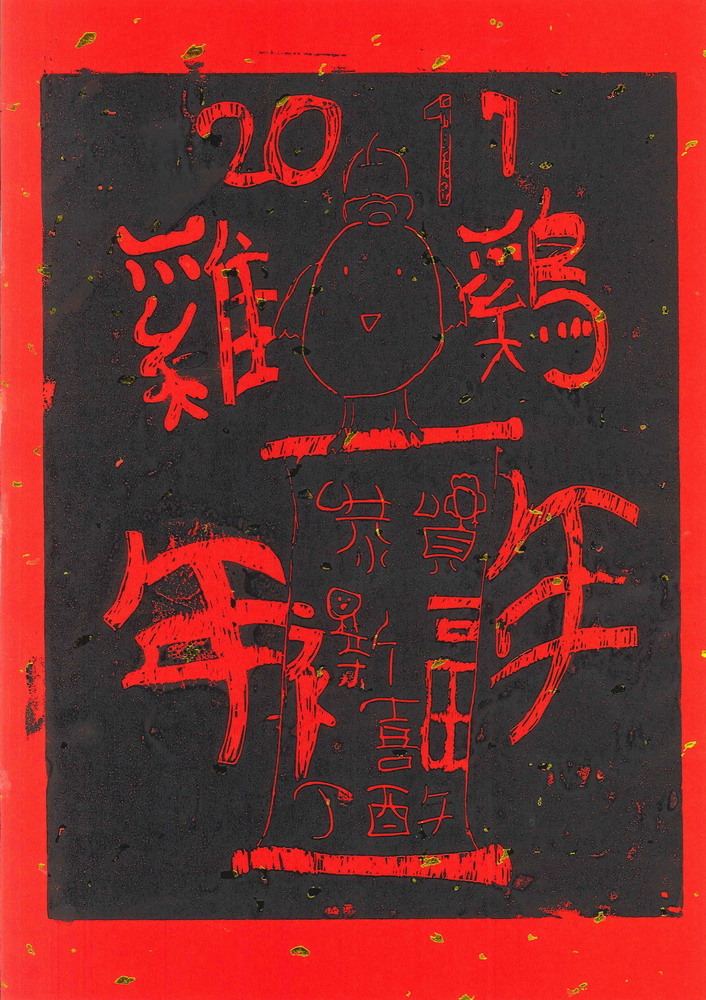 2017
雞 鷄
年 年
恭賀
新
福
喜
丁酉年